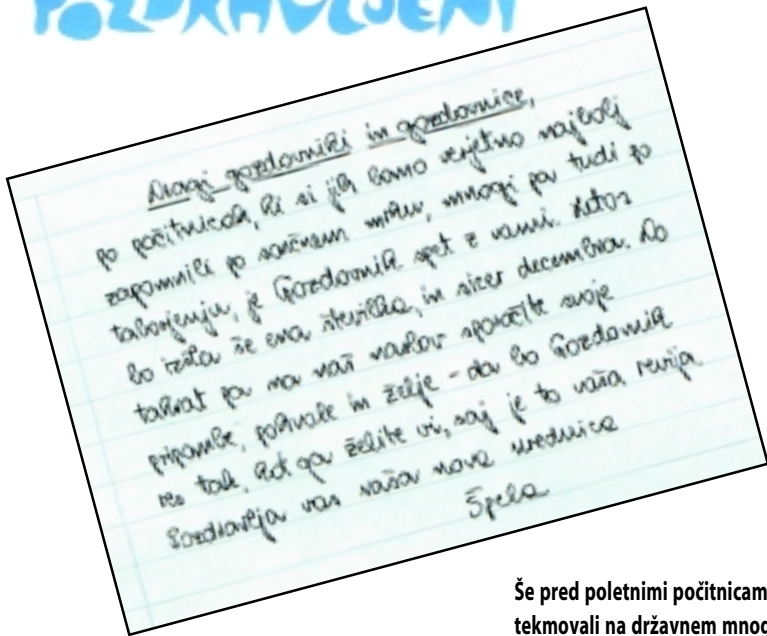 POZDRAVLJENI
Dragi gozdovniki in gozdovnice,
po počitnicah, ki si jih bomo verjetno najbolj
zapomnili po sončnem mrku, mnogi pa tudi po
taborjenju, je Gozdovnik spet z vami. Letos
bo izšla še ena številka, in sicer decembra. Do
takrat pa na naš naslov sporočite svoje
pripombe, pohvale in želje - da bo Gozdovnik
res tak, kot ga želite vi, saj je to vaša revija.
Pozdravlja vas vaša nova urednica
Špela
Še pred poletnimi počitnicam
tekmovali na državnem mnog